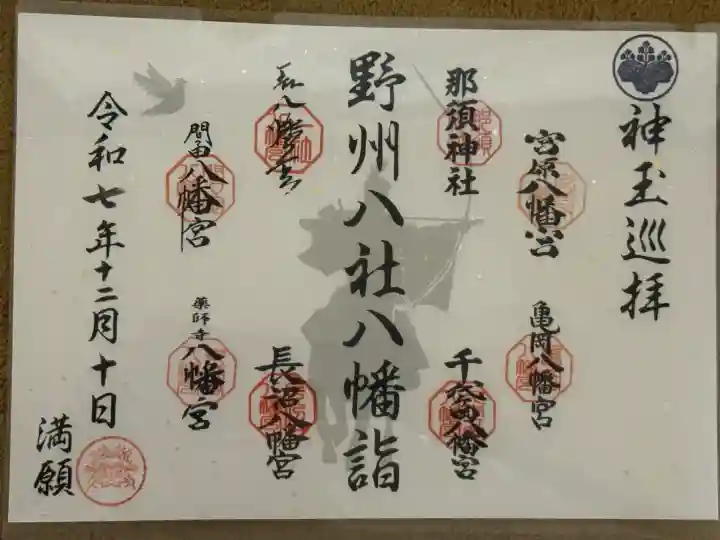 神玉巡拝
宮原八幡宮
亀岡八幡宮
那須神社
千代田八幡宮
野州八社八幡詣
八幡宮
長沼八幡宮
間々田八幡宮
薬師寺八幡宮
令和七年十二月十日
満願